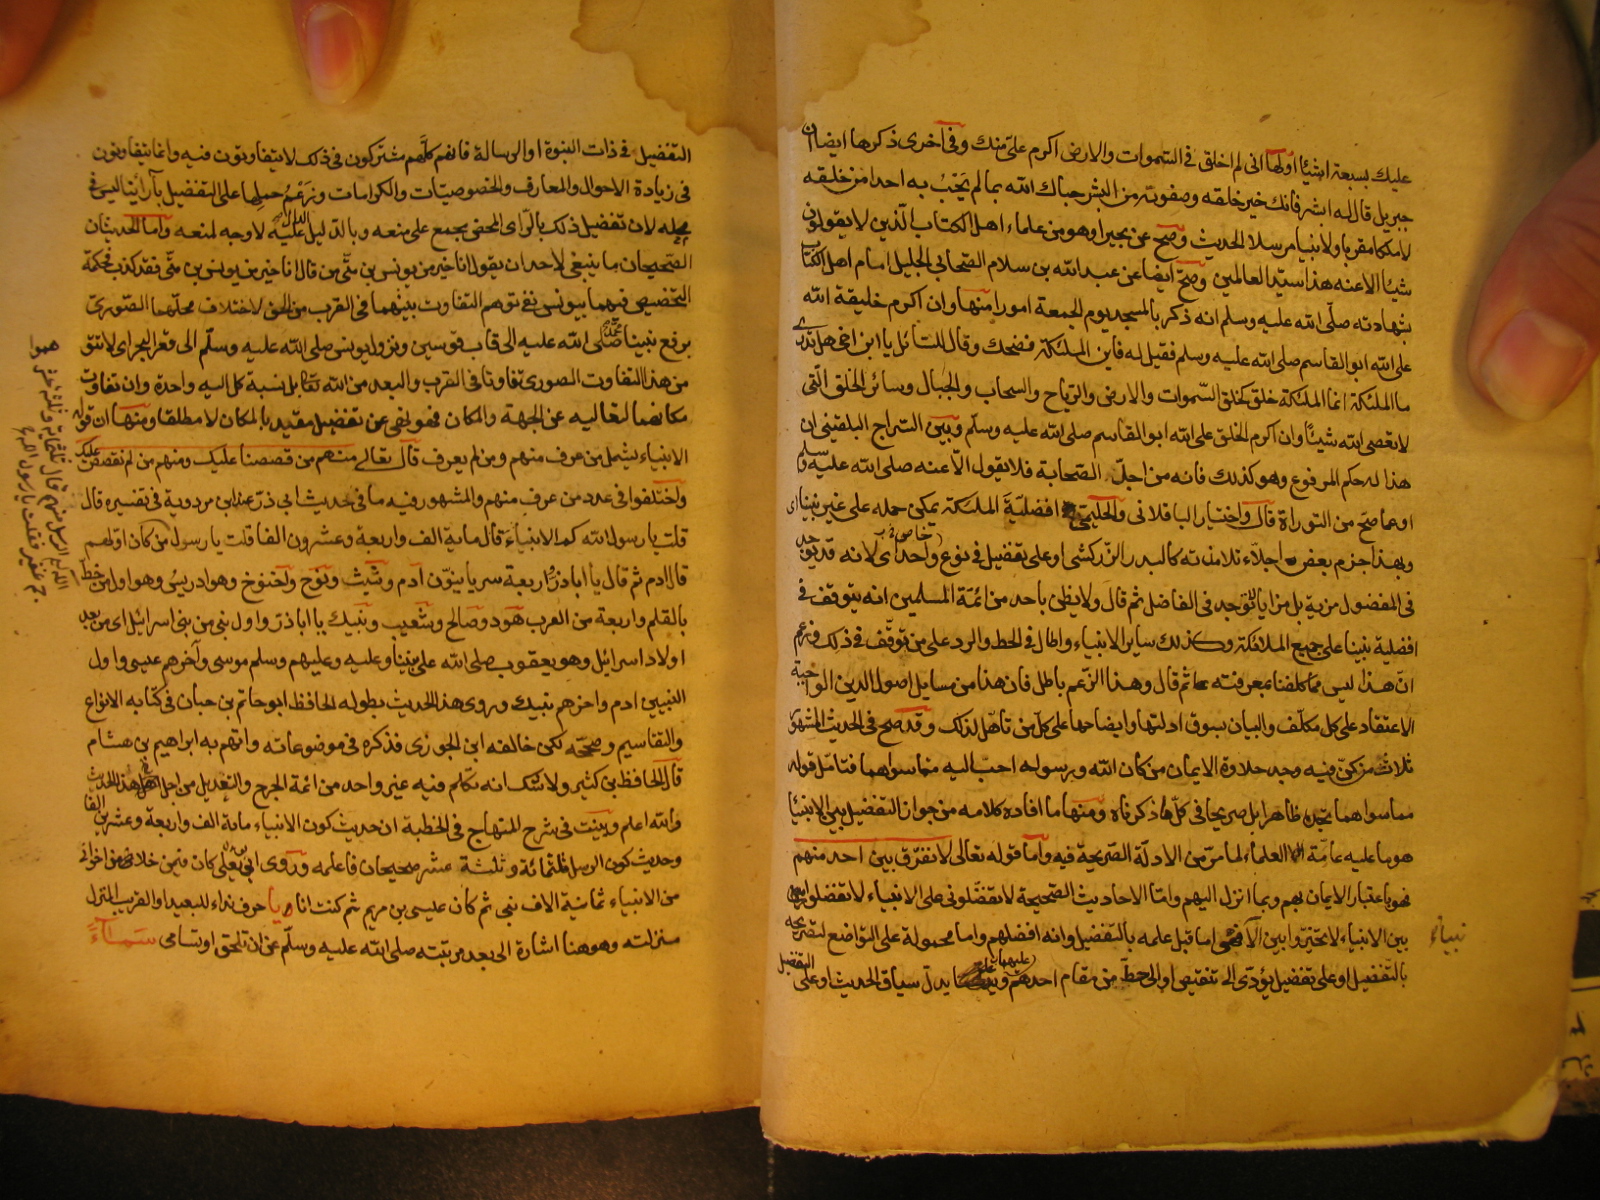 عليك بسبعة اشيئا اولها انى لم اخلق فى السموات والارض اكرم علىّ منك وفى اخرى ذكرها ايضا ان
جبريل قال له ابشر فانك خير خلقه وصفوته من البشر حباك الله بما لم يحب به احدا من خلقه
لا ملكا مقربا ولا نبيا مرسلا الحديث وصح عن بحيرا وهو من علماء اهل الكتاب الذين لا يقولون
شيئا الا عنه هذا سيد العالمين وصح ايضا عن عبد الله بن سلام الصحابى الجليل امام اهل الكتاب
بشهادته صلى الله عليه وسلم انه ذكر بالمسجد يوم الجمعة امورا منها وان اكرم خليقة الله
على الله ابو القاسم صلى الله عليه وسلم فقيل له فاين الملئكة فضحك وقال للسائل يا ابن اخى هل تدرى
ما الملئكة انما الملئكة خلق كخلق السموات والارض والرياح والسحاب والجبال وسائر الخلق التى
لا تعصى الله شيئا وان اكرم الخلق على الله ابو القاسم صلى الله عليه وسلم وبين السراج البلقينى ان
هذا له حكم المرفوع وهو كذلك فانه من اجلّ الصحابة فلا يقول الا عنه صلى الله عليه وسلم
او عما صح من التوراة قال واختيار الباقلانى والحليمى افضلية الملئكة يمكن حمله على غير نبينا اى
وبهذا جزم بعض اجلاء تلامذته كالبدر الزركشى او على تفضيل فى نوع خاص واحد اى لانه قد يوجد
فى المفضول مزية بل مزايا لا توجد فى الفاضل ثم قال ولا يظن باحد من ائمة المسلمين انه يتوقف فى
افضلية نبينا على جميع الملائكة وكذلك ساير الانبياء واطال فى الحط والرد على من توقف فى ذلك وزعم
ان هذا ليس مما كلفنا بمعرفته ثم قال وهذا الزعم باطل فان هذا من مسايل اصول الدين الواجبة
الاعتقاد على كل مكلف والبيان بسوق ادلتها وايضاحها على كل من تاهل لذلك وقد صح فى الحديث المشهور
ثلاث من كن فيه وجد حلاوة الايمان من كان الله ورسوله احب اليه مما سواهما فتامل قوله
مما سواهما تجده ظاهرا بل صريحا فى كل ما ذكرناه ومنها ما افاده كلامه من جواز التفضيل بين الانبياء
هو ما عليه عامة العلماء لما مر من الادلة الصريحة فيه واما قوله تعالى لا نفرق بين احد منهم
فهو باعتبار الايمان بهم وبما انزل اليهم واما الاحاديث الصحيحة لا تفضلونى على الانبياء لا تفضلوا
بين الانبياء لا تخيروا بين الانبياء اما قبل علمه بالتفضيل وانه افضلهم واما محمولة على التواضع لتصريحه
بالتفضيل او على تفضيل يؤدى الى تنقيص او الى حط من مقام احدهم يدل سياق الحديث او على التفضيل
نبياء
التفضيل فى ذات النبوة او الرسالة فانهم كلهم مشتركون فى ذلك لا يتفاوتون فيه وانما يتفاوتون
فى زيادة الاحوال والمعارف والخصوصيات والكرامات وزعم حملها على التفضيل بآرائنا ليس فى
محله لان تفضيل ذلك بالراى المحض يجمع على منعه وبالدليل الدال عليه لا وجه لمنعه واما الحديثان
الصحيحان ما ينبغى لاحد ان يقول انا خير من يونس بن متى من قال انا خير من يونس بن متى فقد كذب فحكمة
التخصيص فيهما بيونس نفى توهم التفاوت بينهما فى القرب من الحق لاختلاف محلهما الصورى
برفع نبينا محمد صلى الله عليه الى قاب قوسين ونزول يونس صلى الله عليه وسلم الى قعر البحر اى لا تتوهموا
من هذا التفاوت الصورى تفاوتا فى القرب والبعد من الله تعالى بل نسبة كل اليه واحدة وان تفاوت
مكانهما لتعاليه عن الجهة والمكان فهو نهى عن تفضيل مقيد بالمكان لا مطلقا ومنها ان قوله
الانبياء يشمل من عرف منهم ومن لم يعرف قال تعالى منهم من قصصنا عليك ومنهم من لم نقصص عليك
واختلفوا فى عدد من عرف منهم والمشهور فيه ما فى حديث ابى ذر عند ابن مردوية فى تفسيره قال
قلت يا رسول الله كم الانبياء قال ماية الف واربعة وعشرون الفا قلت يا رسول من كان اولهم
قال ادم ثم قال يا اباذر اربعة سريانيون آدم وشيث ونوح واخنوخ وهو ادريس وهو اول من خط
بالقلم واربعة من العرب هود وصالح وشعيب ونبيك يا اباذر واول نبى من بنى اسرائل اى من بعد
اولاد اسرائل وهو يعقوب صلى الله على نبينا وعليه وعليهم وسلم موسى وآخرهم عيسى واول
النبيين ادم واخرهم نبيك وروى هذا الحديث بطوله الحافظ ابو حاتم بن حبان فى كتابه الانواع
والتقاسيم وصححه لكن خالفه ابن الجوزى فذكره فى موضوعاته واتهم به ابراهيم بن هشام
قال الحافظ بن كثير ولا شك انه تكلم فيه غير واحد من ائمة الجرح والتعديل من اجل هذا الحديث
والله اعلم وبينت فى شرح المنهاج فى الخطبة ان حديث كون الانبياء ماية الف واربعة وعشرين الفا
وحديث كون الرسل ثلثمائة وثلثة عشر صحيحان فاعلمه وروى ابو يعلى كان فيمن خلا من اخوانى
من الانبياء ثمانية الاف نبى ثم كان عيسى بن مريم ثم كنت انا ويا حرف نداء للبعيد او القريب المنزل
منزلته وهو هنا اشارة الى بعد مرتبته صلى الله عليه وسلم عن ان تلحق او تسامى سماء
هموا
قلت يا رسول الله كم الرسل منهم قال ثلثماية وثلثة عشر
جم غفير فقلت يا رسول الله